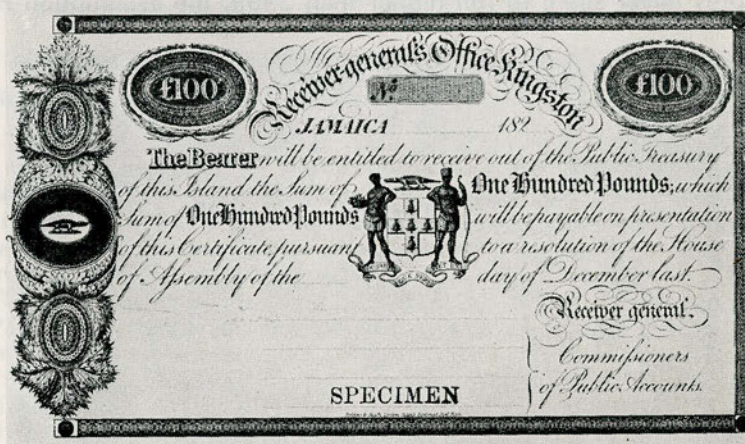 £100
Receiver-general's Office Kingston
£100
No
JAMAICA 182
The Bearer will be entitled to receive out of the Public Treasury
of this Island the Sum of One Hundred Pounds; which
Sum of One Hundred Pounds will be payable on presentation
of this Certificate, pursuant to a resolution of the House
of Assembly of the day of December last.
Receiver general.
Commissioners
of Public Accounts.
SPECIMEN